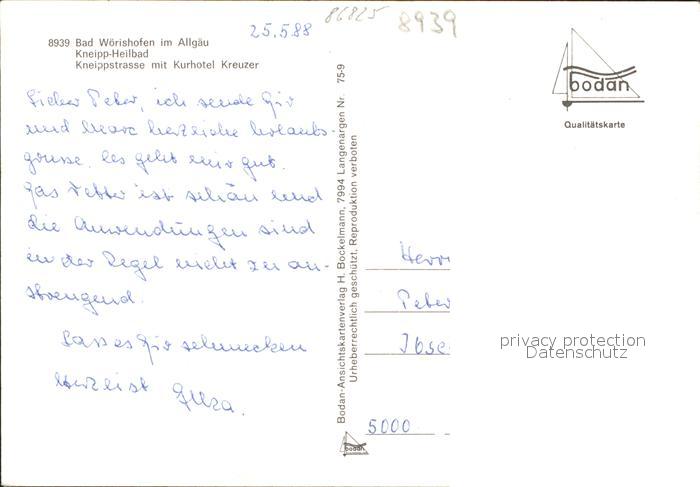 25.5.88
86825
8939
8939 Bad Wörishofen im Allgäu
Kneipp-Heilbad
Kneippstrasse mit Kurhotel Kreuzer
Lieber Peter, ich sende Dir
und Marc herzliche Urlaubs-
grüsse. Es geht mir gut.
Das Wetter ist schön und
die Anwendungen sind
in der Regel nicht zu an-
strengend.
Lass es Dir schmecken
Herzlist
Bodan-Ansichtskartenverlag H. Bockelmann, 7994 Langenargen Nr. 75-9
Urheberrechtlich geschützt, Reproduktion verboten
bodan
Qualitätskarte
Herr
Peter
Ibse
privacy protection
Datenschutz
5000
bodan